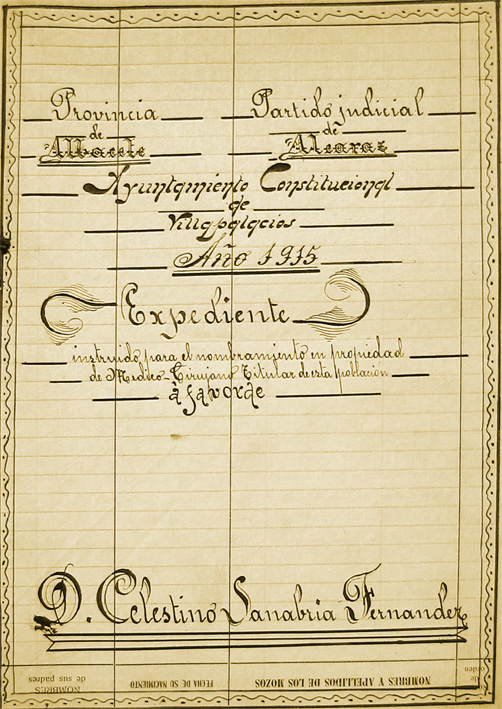 Provincia
de
Albacete
Partido judicial
de
Alcaraz
Ayuntamiento Constitucional
de
Villapalacios
Año 1915
Expediente
instruido para el nombramiento en propiedad
de Medico-Cirujano Titular de esta población
á favor de
D. Celestino Sanabria Fernandez
NOMBRES
de sus padres
FECHA DE SU NACIMIENTO
NOMBRES Y APELLIDOS DE LOS MOZOS
de
orden